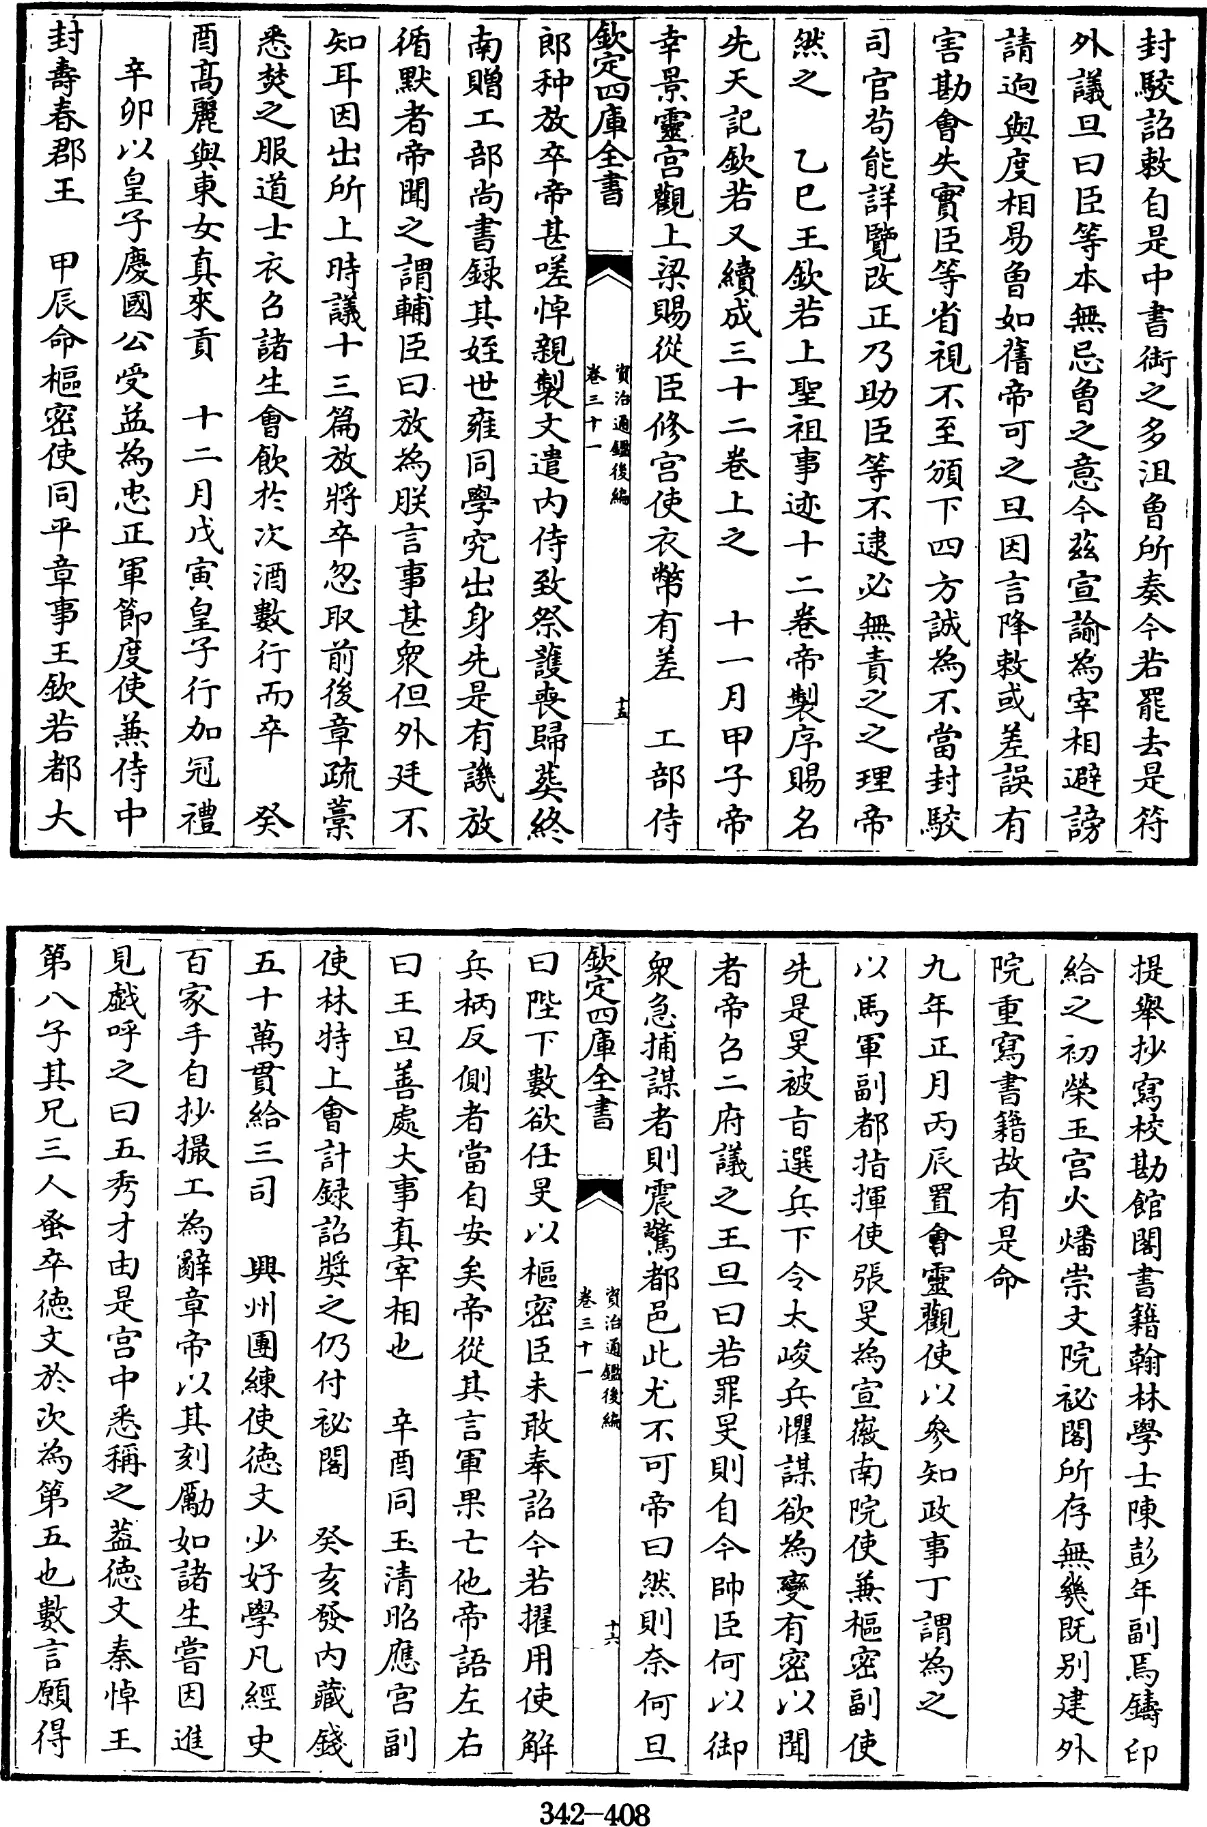 封駁詔敕自是中書銜之多沮魯所奏今若罷去是符
外議旦曰臣等本無忌魯之意今茲宣諭為宰相避謗
請逈與度相易魯如舊帝可之旦因言降敕或差誤有
害勘會失實臣等省視不至頒下四方誠為不當封駁
司官茍能詳覽改正乃助臣等不逮必無責之之理帝
然之　乙巳王欽若上聖祖事迹十二卷帝製序賜名
先天記欽若又續成三十二卷上之　十一月甲子帝
幸景靈宫觀上梁賜從臣修宫使衣幣有差　工部侍
欽定四庫全書
資治通鑑後編
卷三十一
十五
郎种放卒帝甚嗟悼親製文遣内侍致祭護喪歸葬終
南贈工部尚書録其姪世雍同學究出身先是有譏放
循默者帝聞之謂輔臣曰放為朕言事甚衆但外廷不
知耳因出所上時議十三篇放將卒忽取前後章疏藁
悉焚之服道士衣召諸生會飲於次酒數行而卒　癸
酉髙麗與東女真來貢　十二月戊寅皇子行加冠禮
辛卯以皇子慶國公受益為忠正軍節度使兼侍中
封壽春郡王　甲辰命樞密使同平章事王欽若都大
提舉抄寫校勘館閣書籍翰林學士陳彭年副焉鑄印
給之初榮王宫火燔崇文院祕閣所存無幾既别建外
院重寫書籍故有是命
九年正月丙辰置會靈觀使以參知政事丁謂為之
以馬軍副都指揮使張旻為宣徽南院使兼樞密副使
先是旻被㫖選兵下令太峻兵懼謀欲為變有密以聞
者帝召二府議之王旦曰若罪旻則自今帥臣何以御
衆急捕謀者則震驚都邑此尤不可帝曰然則奈何旦
欽定四庫全書
資治通鑑後編
卷三十一
十六
曰陛下數欲任旻以樞密臣未敢奉詔今若擢用使解
兵柄反側者當自安矣帝從其言軍果亡他帝語左右
曰王旦善處大事真宰相也　辛酉同玉清昭應宫副
使林特上會計録詔奬之仍付祕閣　癸亥發内藏錢
五十萬貫給三司　興州團練使徳文少好學凡經史
百家手自抄撮工為辭章帝以其刻厲如諸生嘗因進
見戲呼之曰五秀才由是宫中悉稱之葢徳文秦悼王
第八子其兄三人蚤卒徳文於次為第五也數言願得
342—408